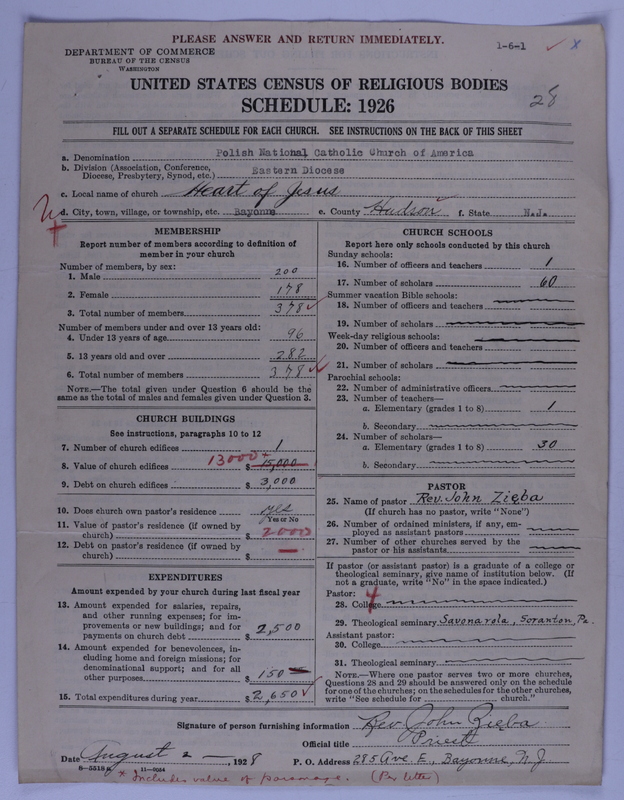 PLEASE ANSWER AND RETURN IMMEDIATELY.
1-6-1
DEPARTMENT OF COMMERCE
BUREAU OF THE CENSUS
WASHINGTON
UNITED STATES CENSUS OF RELIGIOUS BODIES
SCHEDULE: 1926
28
FILL OUT A SEPARATE SCHEDULE FOR EACH CHURCH. SEE INSTRUCTIONS ON THE BACK OF THIS SHEET
a. Denomination Polish National Catholic Church of America
b. Division (Association, Conference, Diocese, Presbytery, Synod, etc.) Eastern Diocese
c. Local name of church Heart of Jesus
d. City, town, village, or township, etc. Bayonne e. County Hudson f. State N.J.
MEMBERSHIP
Report number of members according to definition of
member in your church
Number of members, by sex:
1. Male 200
2. Female 178
3. Total number of members 378
Number of members under and over 13 years old:
4. Under 13 years of age 96
5. 13 years old and over 282
6. Total number of members 378
NOTE.—The total given under Question 6 should be the
same as the total of males and females given under Question 3.
CHURCH BUILDINGS
See instructions, paragraphs 10 to 12
7. Number of church edifices 1
13000 *
8. Value of church edifices $ 15,000
9. Debt on church edifices $ 3,000
10. Does church own pastor's residence yes
Yes or No
11. Value of pastor's residence (if owned by
church) $ 2000
12. Debt on pastor's residence (if owned by
church) $ —
EXPENDITURES
Amount expended by your church during last fiscal year
13. Amount expended for salaries, repairs,
and other running expenses; for im-
provements or new buildings; and for
payments on church debt $ 2,500
14. Amount expended for benevolences, in-
cluding home and foreign missions; for
denominational support; and for all
other purposes $ 150
15. Total expenditures during year $ 2,650
CHURCH SCHOOLS
Report here only schools conducted by this church
Sunday schools:
16. Number of officers and teachers 1
17. Number of scholars 60
Summer vacation Bible schools:
18. Number of officers and teachers
19. Number of scholars
Week-day religious schools:
20. Number of officers and teachers
21. Number of scholars
Parochial schools:
22. Number of administrative officers
23. Number of teachers—
a. Elementary (grades 1 to 8) 1
b. Secondary
24. Number of scholars—
a. Elementary (grades 1 to 8) 30
b. Secondary
PASTOR
25. Name of pastor Rev. John Zięba
(If church has no pastor, write "None")
26. Number of ordained ministers, if any, em-
ployed as assistant pastors
27. Number of other churches served by the
pastor or his assistants
If pastor (or assistant pastor) is a graduate of a college or
theological seminary, give name of institution below. (If
not a graduate, write "No" in the space indicated.)
Pastor:
28. College
29. Theological seminary Savonarola, Scranton, Pa.
Assistant pastor:
30. College
31. Theological seminary
NOTE.—Where one pastor serves two or more churches,
Questions 28 and 29 should be answered only on the schedule
for one of the churches; on the schedules for the other churches,
write "See schedule for church."
Signature of person furnishing information Rev. John Zieba
Official title Priest
Date August 2, 1928 P. O. Address 285 Ave. E., Bayonne, N. J.
* Includes value of parsonage. (Per letter)